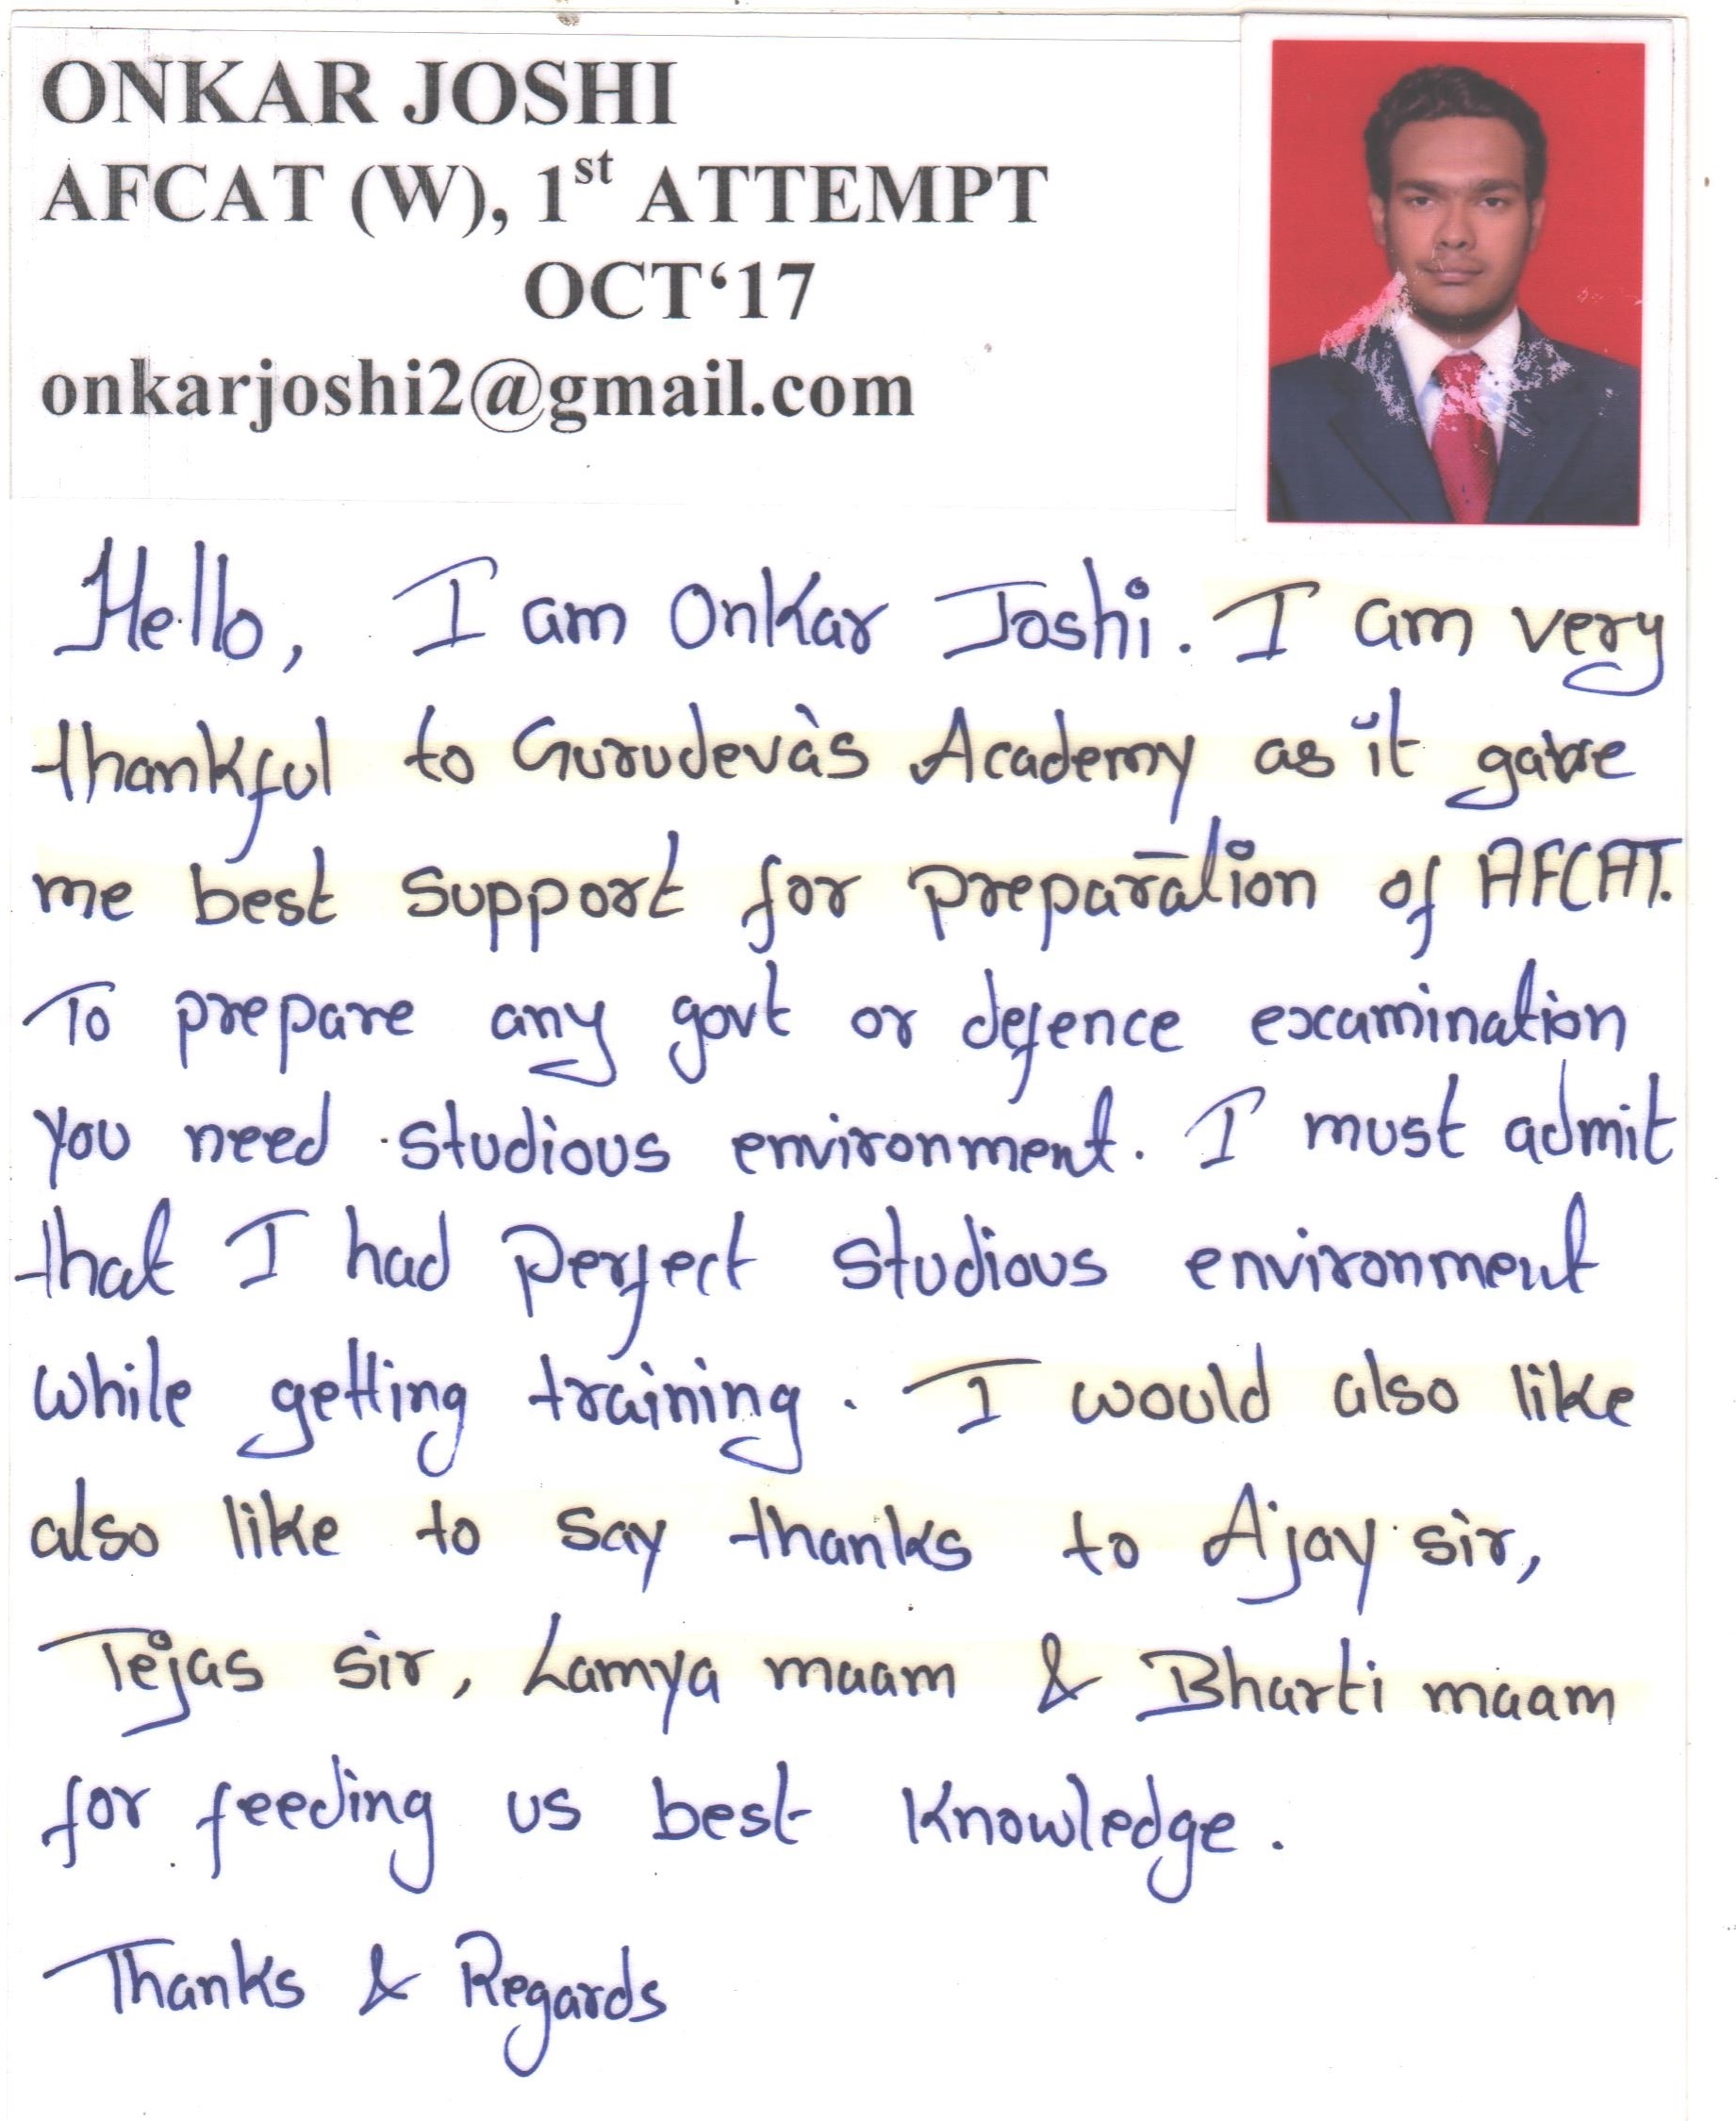 ONKAR JOSHI
AFCAT (W), 1st ATTEMPT
OCT‘17
onkarjoshi2@gmail.com
Hello, I am Onkar Joshi. I am very
thankful to Gurudeva's Academy as it gave
me best support for preparation of AFCAT.
To prepare any govt or defence examination
you need studious environment. I must admit
that I had perfect studious environment
while getting training. I would also like
also like to say thanks to Ajay sir,
Tejas sir, Lamya maam & Bharti maam
for feeding us best knowledge.
Thanks & Regards